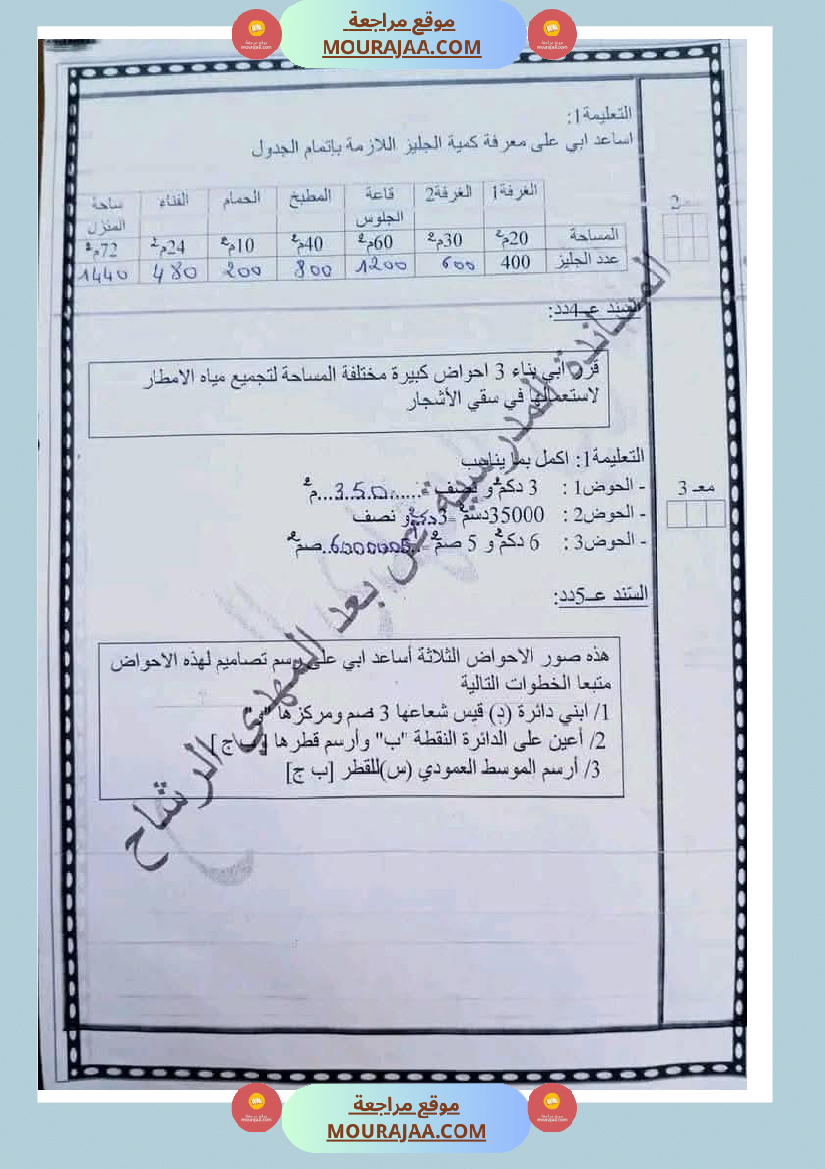 موقع مراجعة
MOURAJAA.COM
التعليمة1:
اساعد ابي على معرفة كمية الجليز اللازمة بإتمام الجدول
الغرفة1 الغرفة2 قاعة الجلوس المطبخ الحمام الفناء ساحة المنزل
المساحة 20م² 30م² 60م² 40م² 10م² 24م² 72م²
عدد الجليز 400 600 1200 800 200 480 1440
معـ2
السند عـ4دد:
قرر ابي بناء 3 احواض كبيرة مختلفة المساحة لتجميع مياه الامطار
لاستعمالها في سقي الأشجار
التعليمة1: اكمل بما يناسب
معـ 3
- الحوض1 : 3 دكم² و نصف =......350...م²
- الحوض2 : 35000دسم² =3دكم² و نصف
- الحوض3 : 6 دكم² و 5 صم² =..6000005.صم²
السند عـ5دد:
هذه صور الاحواض الثلاثة أساعد ابي على رسم تصاميم لهذه الاحواض
متبعا الخطوات التالية
1/ ابني دائرة (د) قيس شعاعها 3 صم ومركزها "و"
2/ أعين على الدائرة النقطة "ب" وأرسم قطرها [ب ج]
3/ أرسم الموسط العمودي (س)للقطر [ب ج]
المساندة المدرسية عن بعد المهدي الرشاح
موقع مراجعة
MOURAJAA.COM